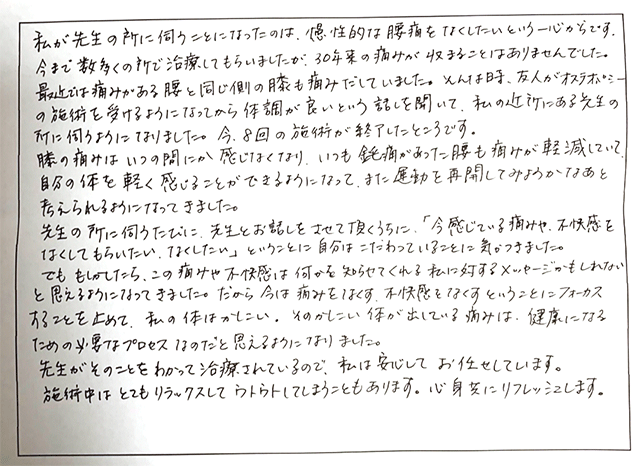 私が先生の所に伺うことになったのは、慢性的な腰痛をなくしたいという一心からです。
今まで数多くの所で治療してもらいましたが、30年来の痛みが収まることはありませんでした。
最近では痛みがある腰と同じ側の膝も痛みだしていました。そんな時、友人がオステオパシー
の施術を受けるようになってから体調が良いという話しを聞いて、私の近所にある先生の
所に伺うようになりました。今、8回の施術が終了したところです。
膝の痛みはいつの間にか感じなくなり、いつも鈍痛があった腰も痛みが軽減していて、
自分の体を軽く感じることができるようになって、また運動を再開してみようかなあと
考えられるようになってきました。
先生の所に伺うたびに、先生とお話しをさせて頂くうちに、「今感じている痛みや、不快感を
なくしてもらいたい、なくしたい」ということに自分はこだわっていることに気がつきました。
でももしかしたら、この痛みや不快感は何かを知らせてくれる私に対するメッセージかもしれない
と思えるようになってきました。だから今は痛みをなくす、不快感をなくすということにフォーカス
することを止めて、私の体はかしこい。そのかしこい体が出している痛みは、健康になる
ための必要なプロセスなのだと思えるようになりました。
先生がそのことをわかって治療されているので、私は安心してお任せしています。
施術中はとてもリラックスしてウトウトしてしまうこともあります。心身共にリフレッシュします。